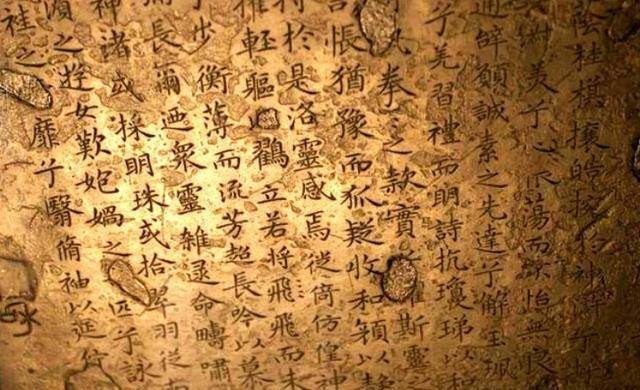 蔭桂棋攘皓於神滸兮
美兮心蕩而不怡無良
通辭願誠素之先達兮解玉珮
兮羌習禮而明詩抗瓊珶以和
拳之款實斯靈
悵猶豫而狐疑收和穎以靜
持於是洛靈感焉徙倚仿偟神
輕軀鶴立若將飛飛而未
步衡薄而流芳超長吟以慕
長爾迺眾靈雜遝命疇嘯
神渚或採明珠或拾翠羽從南
濱之遊女歎妃媧之匹兮詠
袿之靡兮翳脩袖以延佇